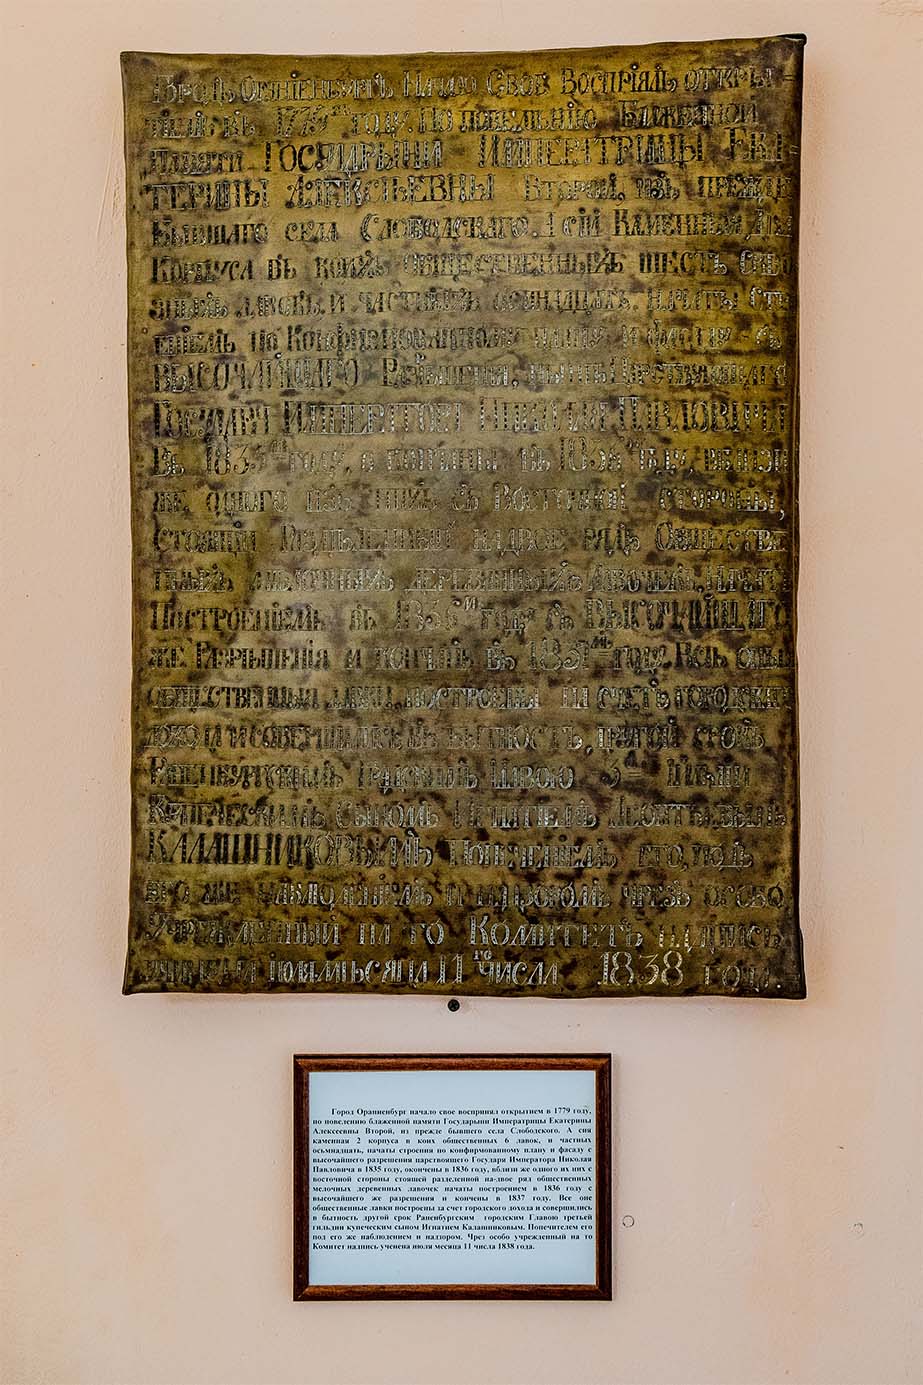 Градъ Оранiенбургъ Начало Свое Восприялъ откры=
тiемъ въ 1779мъ году. По повелѣнiю Блаженной
Памяти ГОСУДАРЫНИ ИМПЕРАТРИЦЫ ЕКА=
ТЕРИНЫ АЛЕКСѢЕВНЫ Второй, изъ прежде
Бывшаго села Слободскаго. А сiи Каменныя Два
Корпуса въ коихъ общественныхъ шесть
лавокъ и частныхъ осмнадцать. начаты
по Конфирмованному плану и фасаду съ
ВЫСОЧАЙШАГО Разрѣшенiя, нынѣ Царствующаго
Государя ИМПЕРАТОРА НИКОЛАЯ ПАВЛОВИЧА
Въ 1835мъ году, а кончены въ 1836мъ году, вблизи
же одного изъ нихъ съ Восточной стороны,
Стоящiй надвое рядъ Обществе
мелочныхъ деревянныхъ лавочекъ, начатъ
Построенiемъ въ 1836м году съ ВЫСОЧАЙШАГО
же Разрѣшенiя и конченъ въ 1837мъ году. Всѣ оныя
общественныя лавки, построены на счетъ городскаго
дохода и совершились въ бытность, другой срокъ
Раненбургскимъ Градскимъ Главою 3й Гильдiи
Купеческимъ Сыномъ Игнатiемъ
КАЛАШНИКОВЫМЪ Попеченiемъ его, подъ
его же наблюденiемъ и надзоромъ чрезъ особо
Учрежденный на то Комитетъ надпись
учинена iюля мѣсяца 11го числа 1838 года.
Город Ораниенбург начало свое воспринял открытием в 1779 году,
по повелению блаженной памяти Государыни Императрицы Екатерины
Алексеевны Второй, из прежде бывшего села Слободского. А сия
каменная 2 корпуса в коих общественных 6 лавок, и частных
осьмнадцать, начаты строения по конфирмованному плану и фасаду с
высочайшего разрешения царствоящего Государя Императора Николая
Павловича в 1835 году, окончены в 1836 году, вблизи же одного их них с
восточной стороны стоящей разделенной на-двое ряд общественных
мелочных деревенных лавочек начаты построением в 1836 году с
высочайшего же разрешения и кончены в 1837 году. Все оне
общественные лавки построены за счет городского дохода и совершились
в бытность другой срок Раненбургским городским Главою третьей
гильдии купеческим сыном Игнатием Калашниковым. Попечителем его
под его же наблюдением и надзором. Чрез особо учрежденный на то
Комитет надпись ученена июля месяца 11 числа 1838 года.